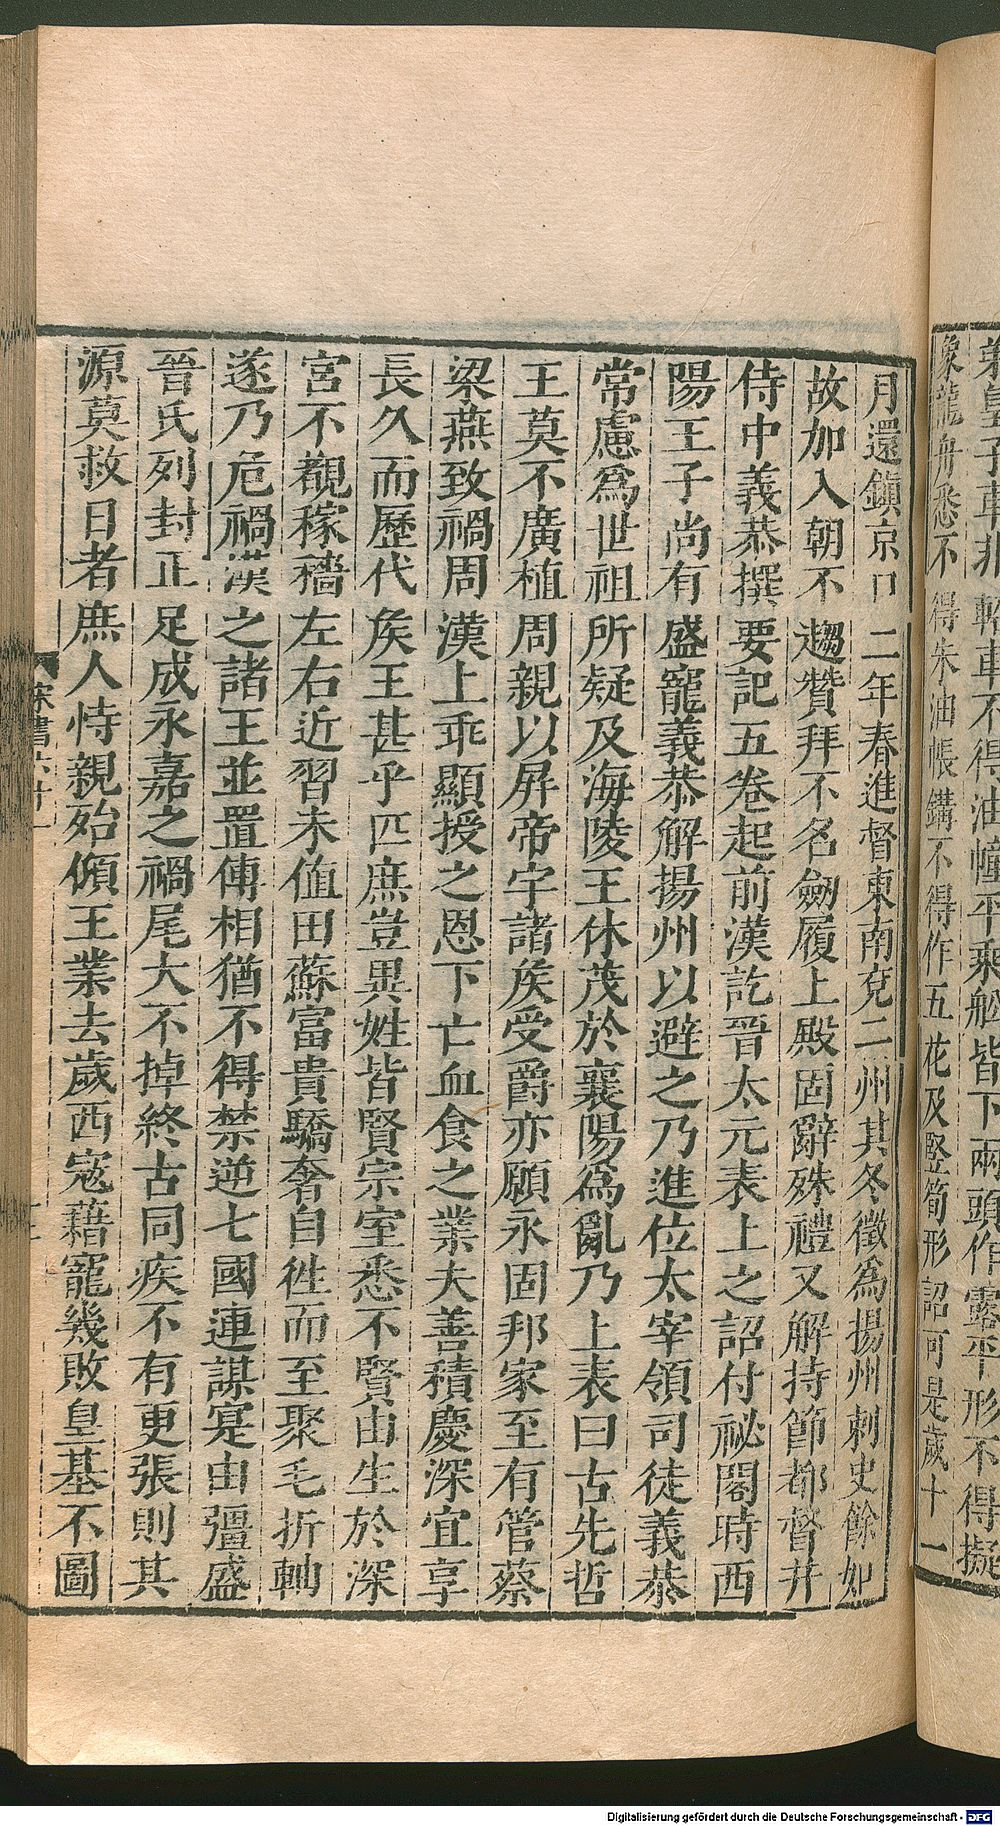 義皇子車非軺車不得油幢平乘舫皆下兩頭作露平形不得擬
像龍舟悉不得朱油帳鏄不得作五花及竪筍形詔可是歲十一
月還鎮京口二年春進督東南兗二州其冬徵爲揚州刺史餘如
故加入朝不趨贊拜不名劒履上殿固辭殊禮又解持節都督并
侍中義恭撰要記五卷起前漢訖晉太元表上之詔付祕閣時西
陽王子尚有盛寵義恭解揚州以避之乃進位太宰領司徒義恭
常慮爲世祖所疑及海陵王休茂於襄陽爲亂乃上表曰古先哲
王莫不廣植周親以屏帝宇諸矦受爵亦願永固邦家至有管蔡
梁燕致禍周漢上乖顯授之恩下亡血食之業夫善積慶深宜享
長久而歷代矦王甚乎匹庶豈異姓皆賢宗室悉不賢由生於深
宮不覩稼穡左右近習未値田蘇富貴驕奢自徃而至聚毛折軸
遂乃危禍漢之諸王並置傅相猶不得禁逆七國連謀寔由彊盛
晉氏列封正足成永嘉之禍尾大不掉終古同疾不有更張則其
源莫救日者庶人恃親殆傾王業去歲西寇藉寵幾敗皇基不圖
宋書六十一
Digitalisierung gefördert durch die Deutsche Forschungsgemeinschaft - DFG